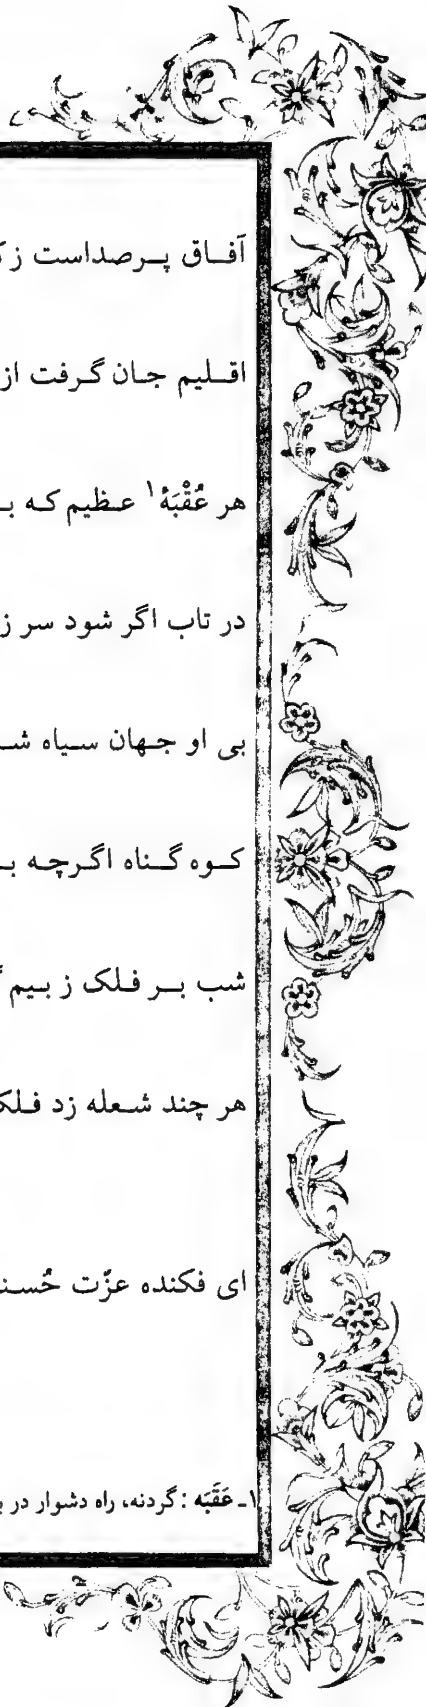 آفاق پرصداست ز
اقلیم جان گرفت از
هر عُقْبَهٔ۱ عظیم که
در تاب اگر شود سر
بی او جهان سیاه
کوه گناه اگرچه
شب بر فلک ز بیم
هر چند شعله زد فلک
ای فکنده عزّت
۱ـ عَقَبَه : گردنه، راه دشوار در